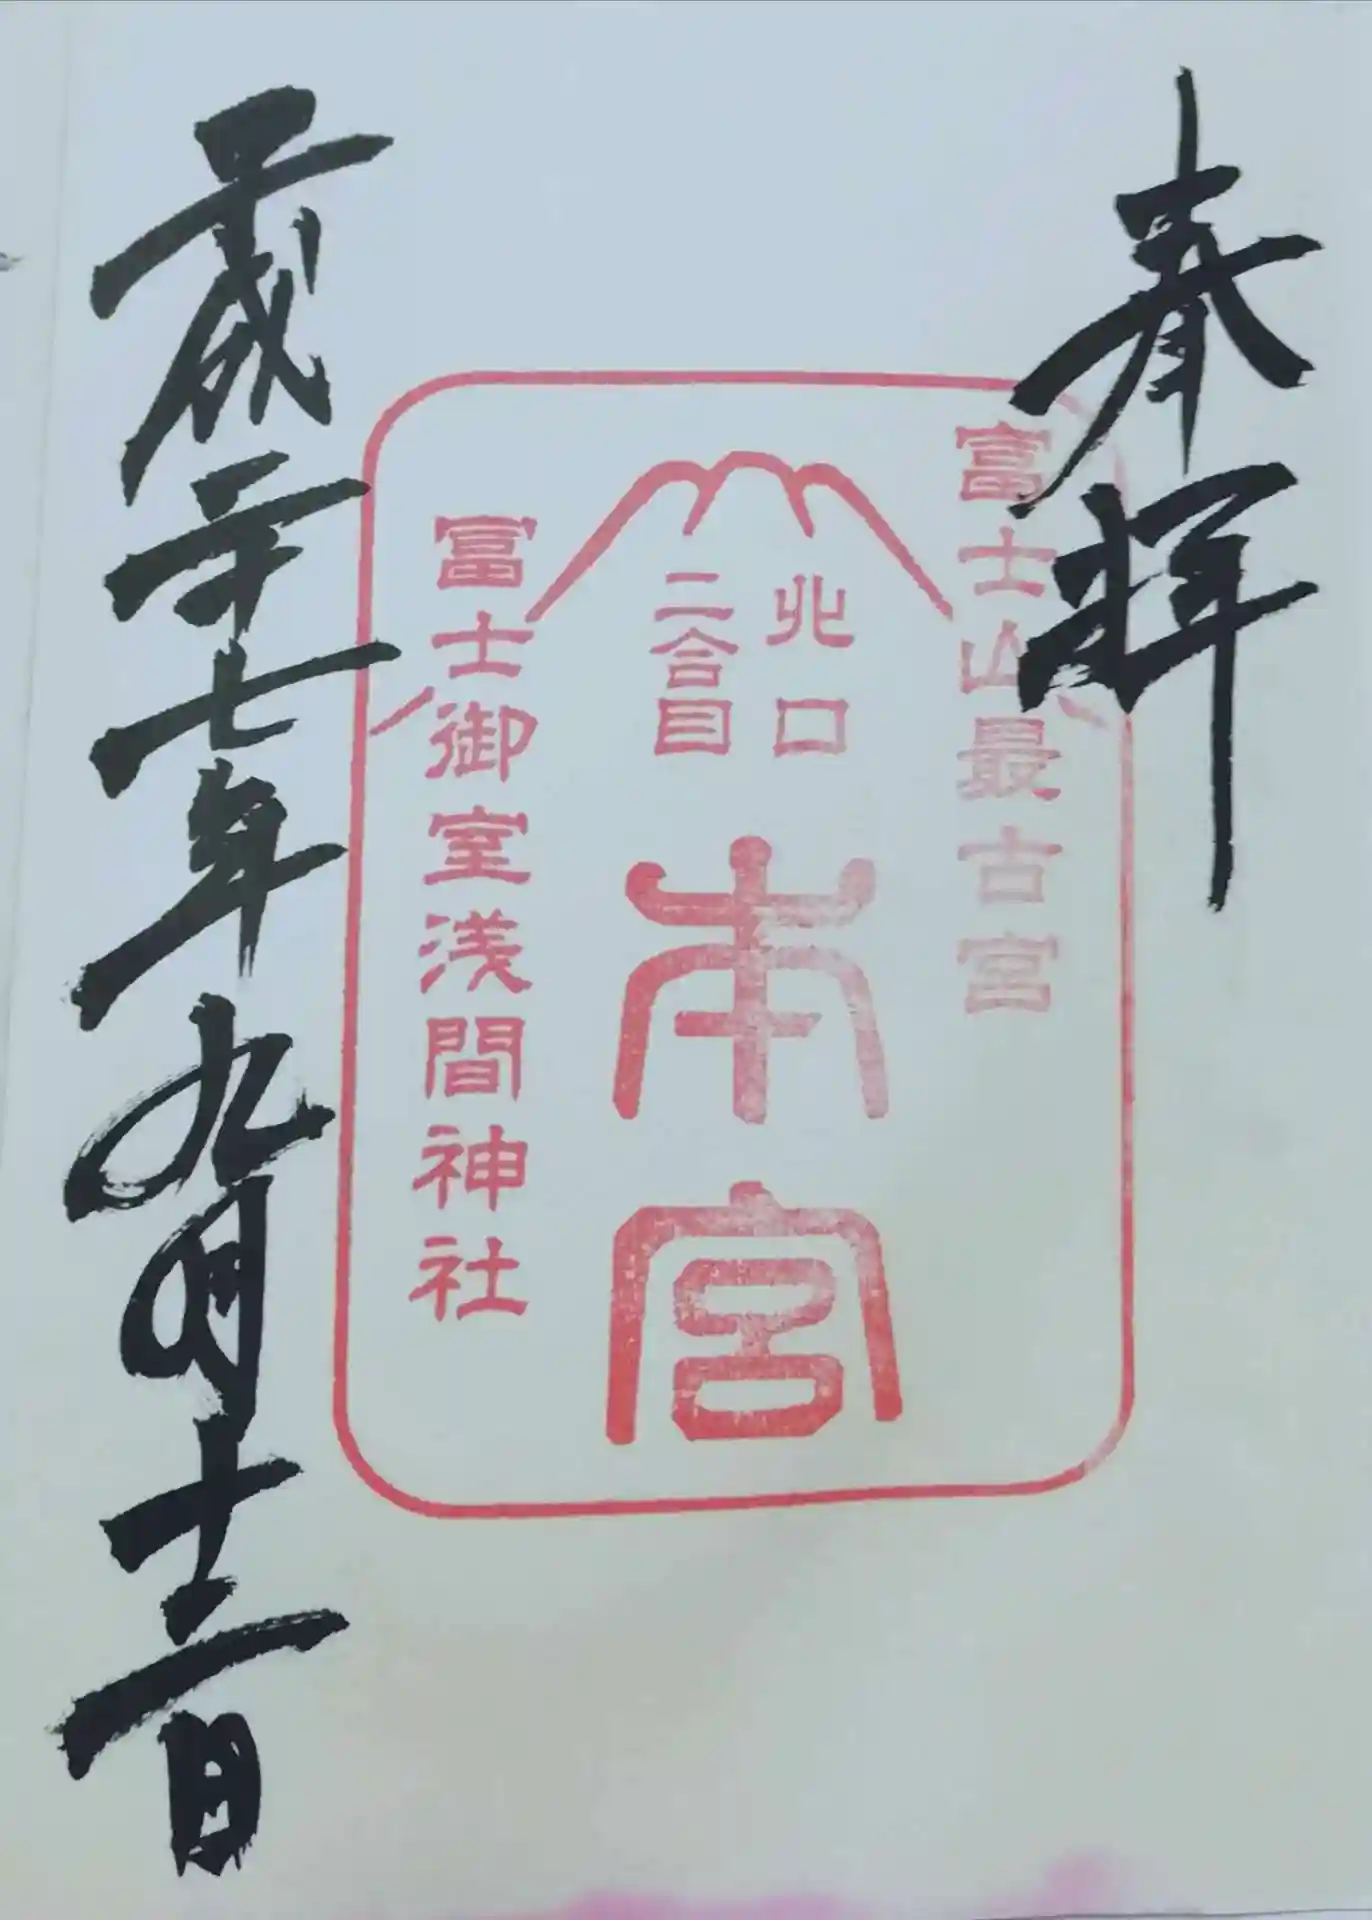 奉拝
富士山最古宮
北口
二合目
本宮
冨士御室浅間神社
平成二十七年九月十二日